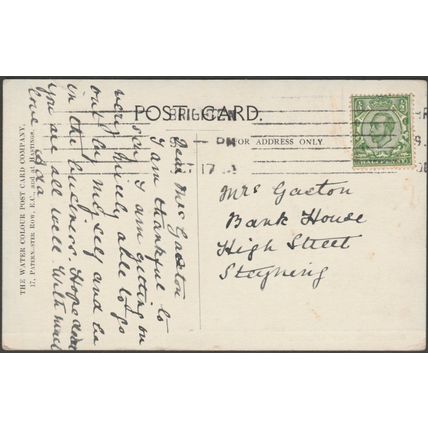 POST CARD.
BRIGHTON
PM
17
FOR ADDRESS ONLY
Dear Mrs Gaston
I am thankful to
say I am getting on
nicely able to go
out by myself and in
the business Hope dear
you are all well With much
love
Mrs Gaston
Bank House
High Street
Steyning
THE WATER COLOUR POST CARD COMPANY,
17, PATERNOSTER ROW, E.C., and at HASTINGS.